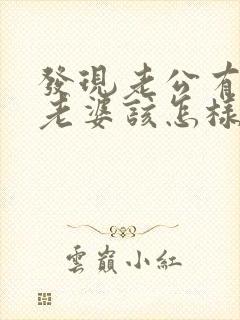 發現老公有
老婆該怎樣
雲嶺小紅